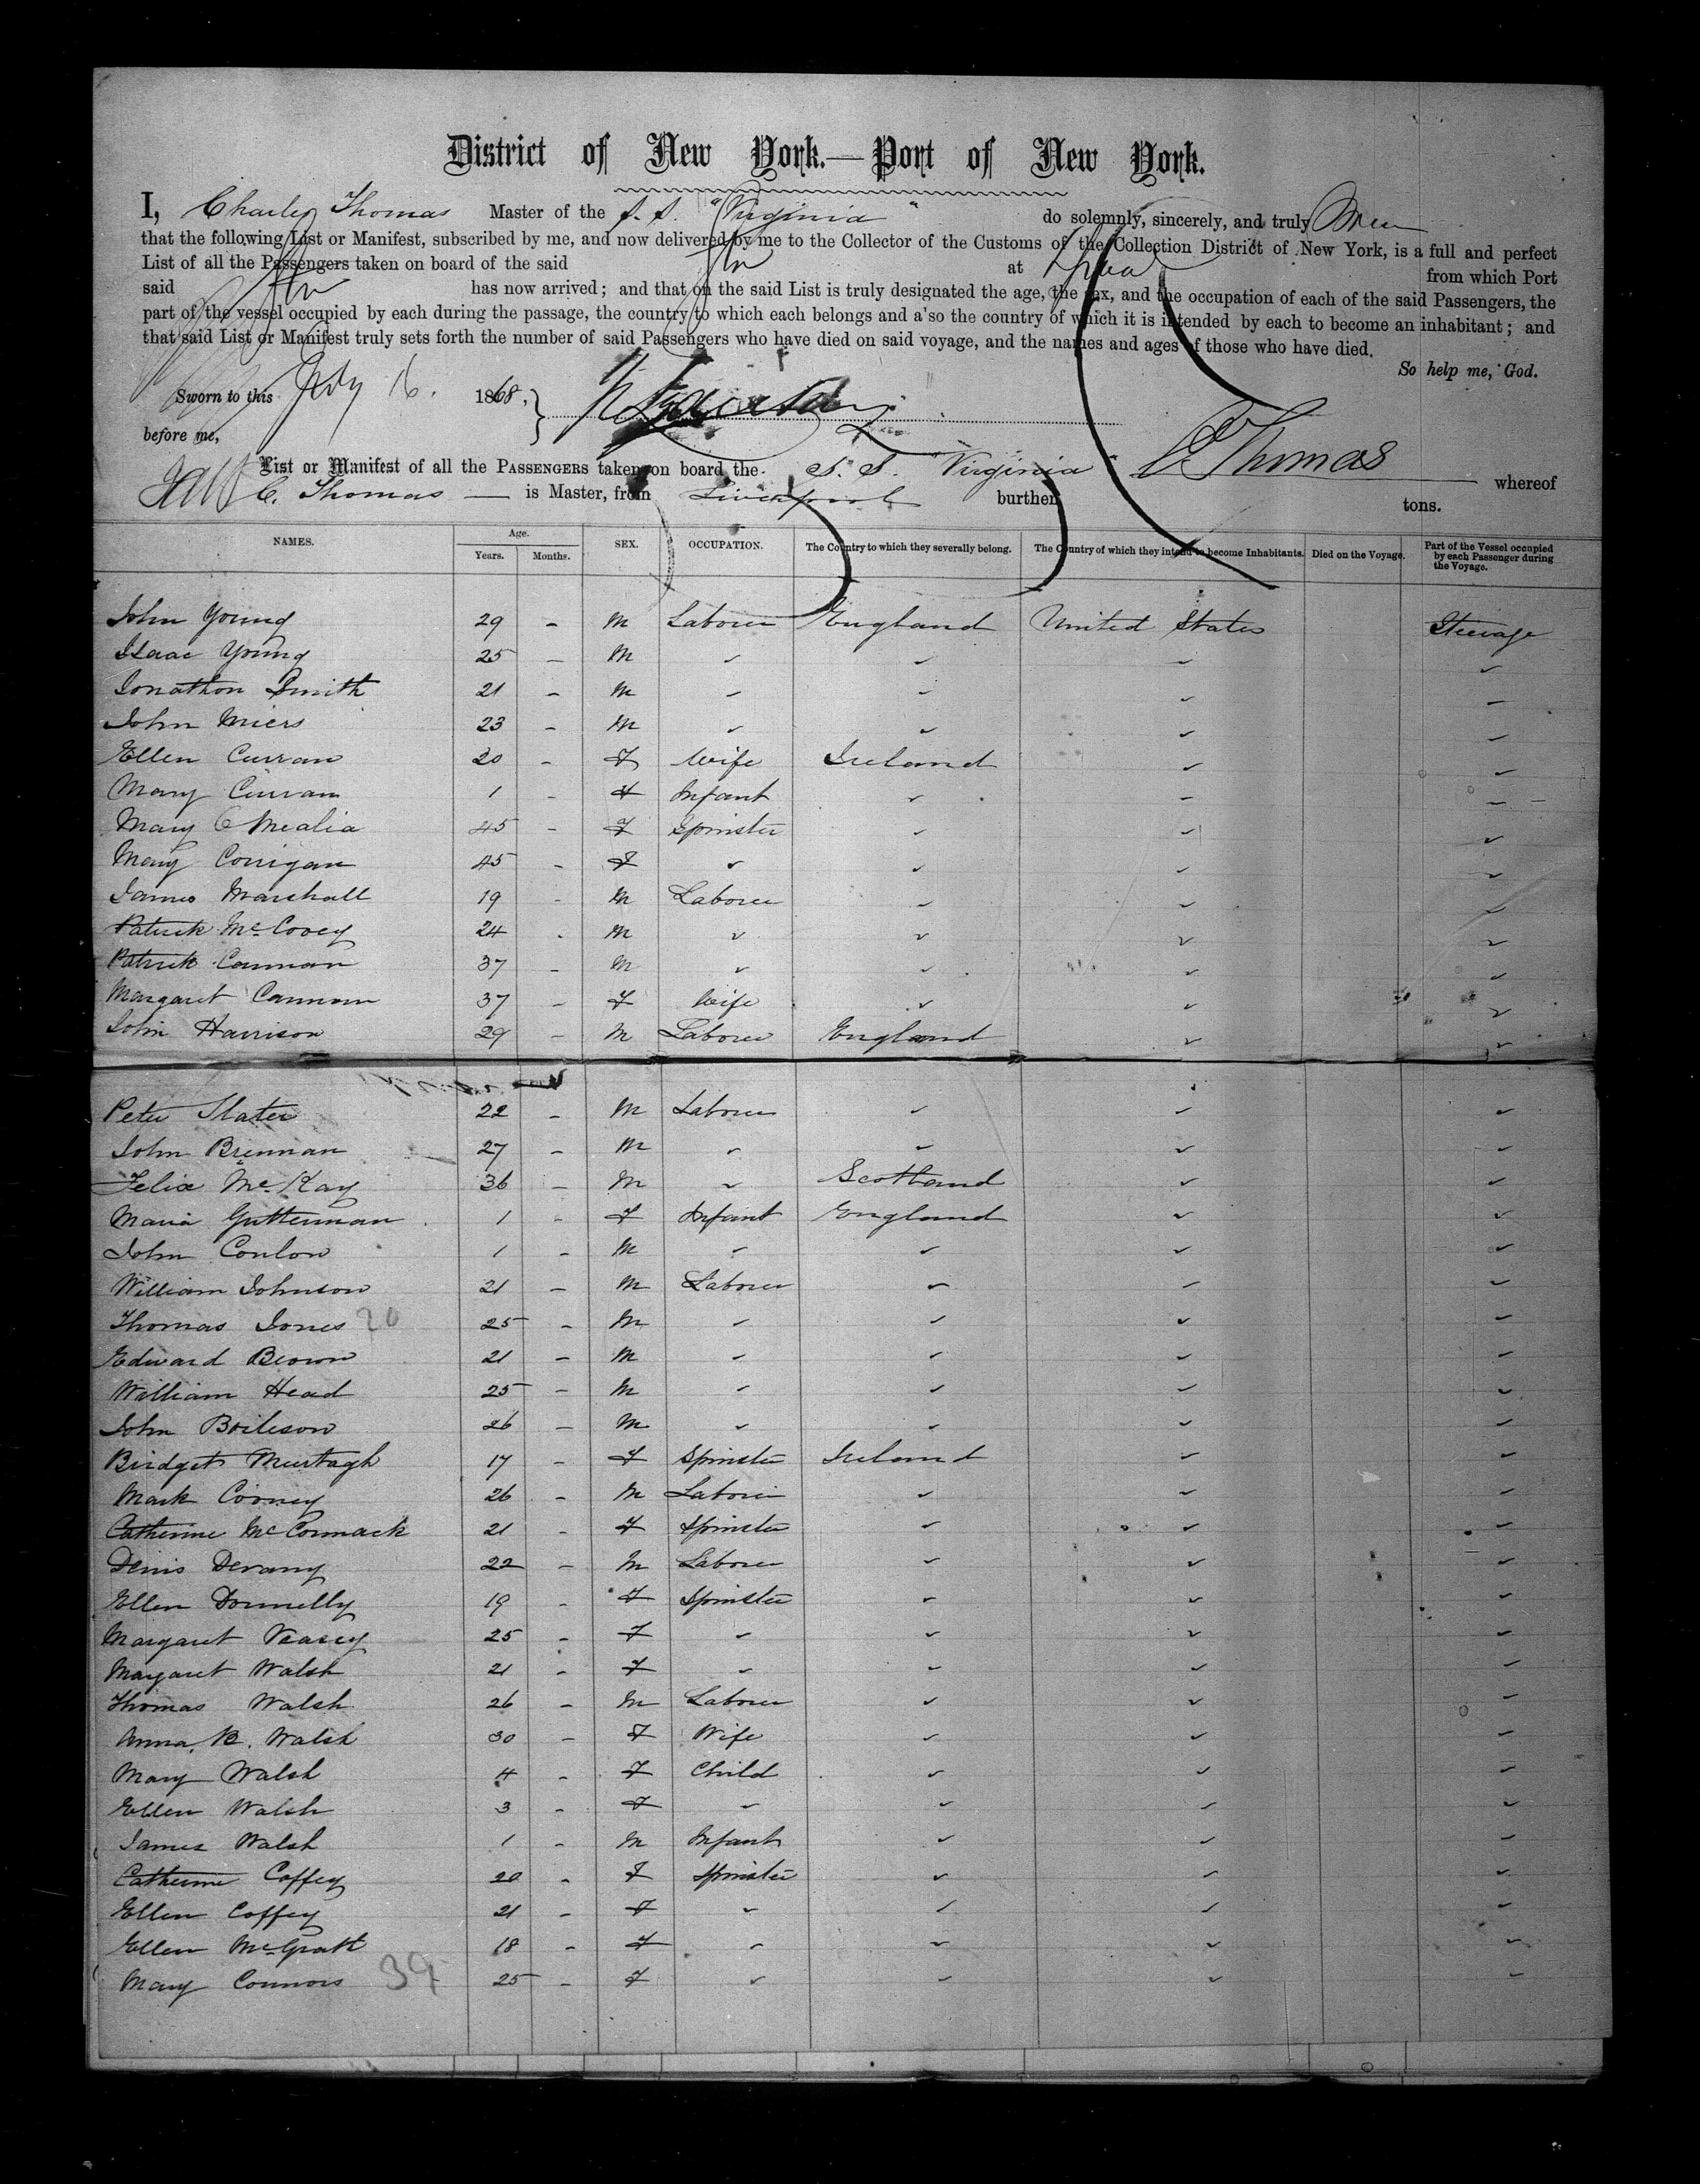 District of New York.—Port of New York.
I, Charles Thomas Master of the S. S. "Virginia" do solemnly, sincerely, and truly
that the following List or Manifest, subscribed by me, and now delivered by me to the Collector of the Customs of the Collection District of New York, is a full and perfect
List of all the Passengers taken on board of the said at from which Port
said has now arrived; and that on the said List is truly designated the age, the sex, and the occupation of each of the said Passengers, the
part of the vessel occupied by each during the passage, the country to which each belongs and a'so the country of which it is intended by each to become an inhabitant; and
that said List or Manifest truly sets forth the number of said Passengers who have died on said voyage, and the names and ages of those who have died.
So help me, God.
Sworn to this 16. 1868,
before me,
C Thomas
List or Manifest of all the PASSENGERS taken on board the S. S. "Virginia" whereof
C. Thomas — is Master, from Liverpool burthen tons.
NAMES. Age. Years. Months. SEX. OCCUPATION. The Country to which they severally belong. The Country of which they intend to become Inhabitants. Died on the Voyage. Part of the Vessel occupied by each Passenger during the Voyage.
John Young 29 - M Laborer England United States Steerage
Isaac Young 25 - M " " " "
Jonathon Smith 21 - M " " " "
John Miers 23 - M " " " "
Ellen Curran 20 - F Wife Ireland " "
Mary Curran 1 - F Infant " " "
Mary O Mealia 45 - F Spinster " " "
Mary Corrigan 45 - F " " " "
James Marshall 19 - M Laborer " " "
Patrick McCovey 24 - M " " " "
Patrick Cannon 37 - M " " " "
Margaret Cannon 37 - F Wife " " "
John Harrison 29 - M Laborer England " "
Peter Slater 22 - M Laborer " " "
John Brennan 27 - M " " " "
Felix McKay 36 - M " Scotland " "
Maria Gutterman 1 - F Infant England " "
John Conlon 1 - M " " " "
William Johnson 21 - M Laborer " " "
Thomas Jones 20 25 - M " " " "
Edward Brown 21 - M " " " "
William Head 25 - M " " " "
John Boileson 26 - M " " " "
Bridget Murtagh 17 - F Spinster Ireland " "
Mark Cooney 26 - M Laborer " " "
Catherine McCormack 21 - F Spinster " " "
Denis Devany 22 - M Laborer " " "
Ellen Donnelly 19 - F Spinster " " "
Margaret Veasey 25 - F " " " "
Margaret Walsh 21 - F " " " "
Thomas Walsh 26 - M Laborer " " "
Anna B. Walsh 30 - F Wife " " "
Mary Walsh 4 - F Child " " "
Ellen Walsh 3 - F " " " "
James Walsh 1 - M Infant " " "
Catherine Coffey 20 - F Spinster " " "
Ellen Coffey 21 - F " " " "
Ellen McGratt 18 - F " " " "
Mary Connors 39 25 - F " " " "